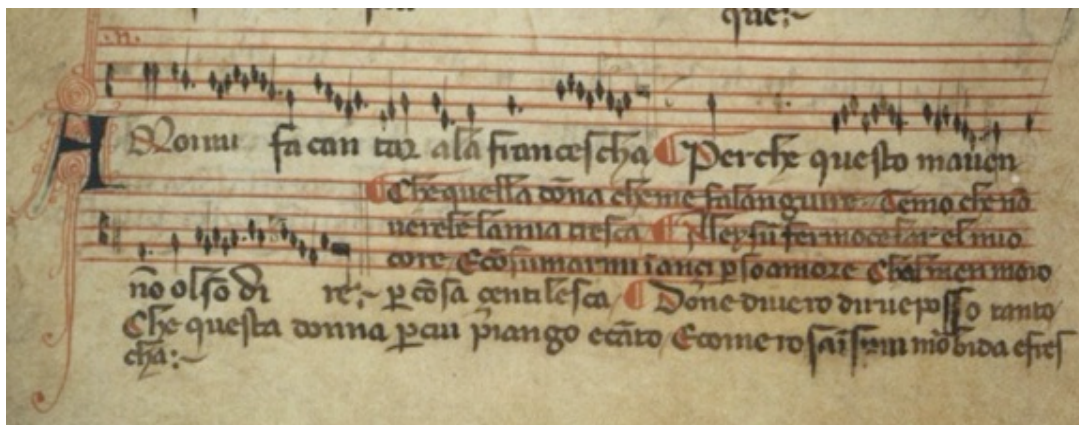 que:~
.n.
A Mormi fa can tar a la francescha Perche questo mauen
Che quella dona che me fa languire Temo che no
uerebe la mia tresca A ley sum fermo celar el mio
core E cosumarmi inançi p so amore Chalmen moro
no olso di re:~ p cosa gentilesca Done di uero dir ue posso tanto
Che questa donna p cui piango e cato E come rosa i su spin morbida e fres
cha:~